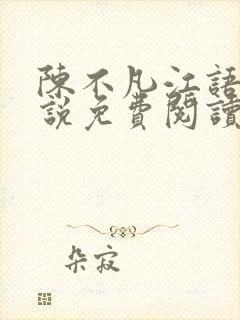 陳不凡江語
說免費閱讀
朵寂